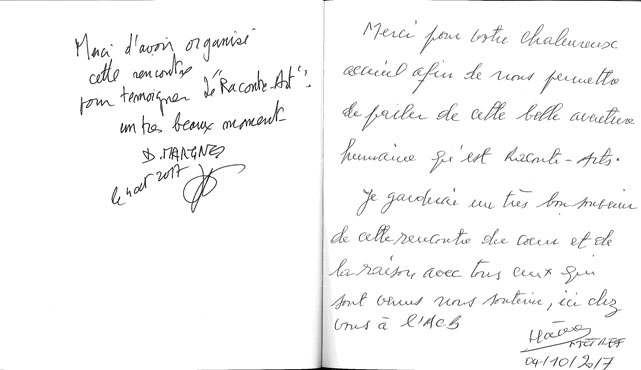 Merci d'avoir organisé
cette rencontre
pour témoigner de "Raconte-Art":
un très beaux moment
D. MARGNES
le 4 oct 2017
Merci pour votre chaleureux
accueil afin de nous permettre
de parler de cette belle aventure
humaine qu'est Raconte-Arts.
Je garderai un très bon souvenir
de cette rencontre du coeur et de
la raison avec tous ceux qui
sont venus nous soutenir, ici chez
vous à l'ACB
04/10/2017